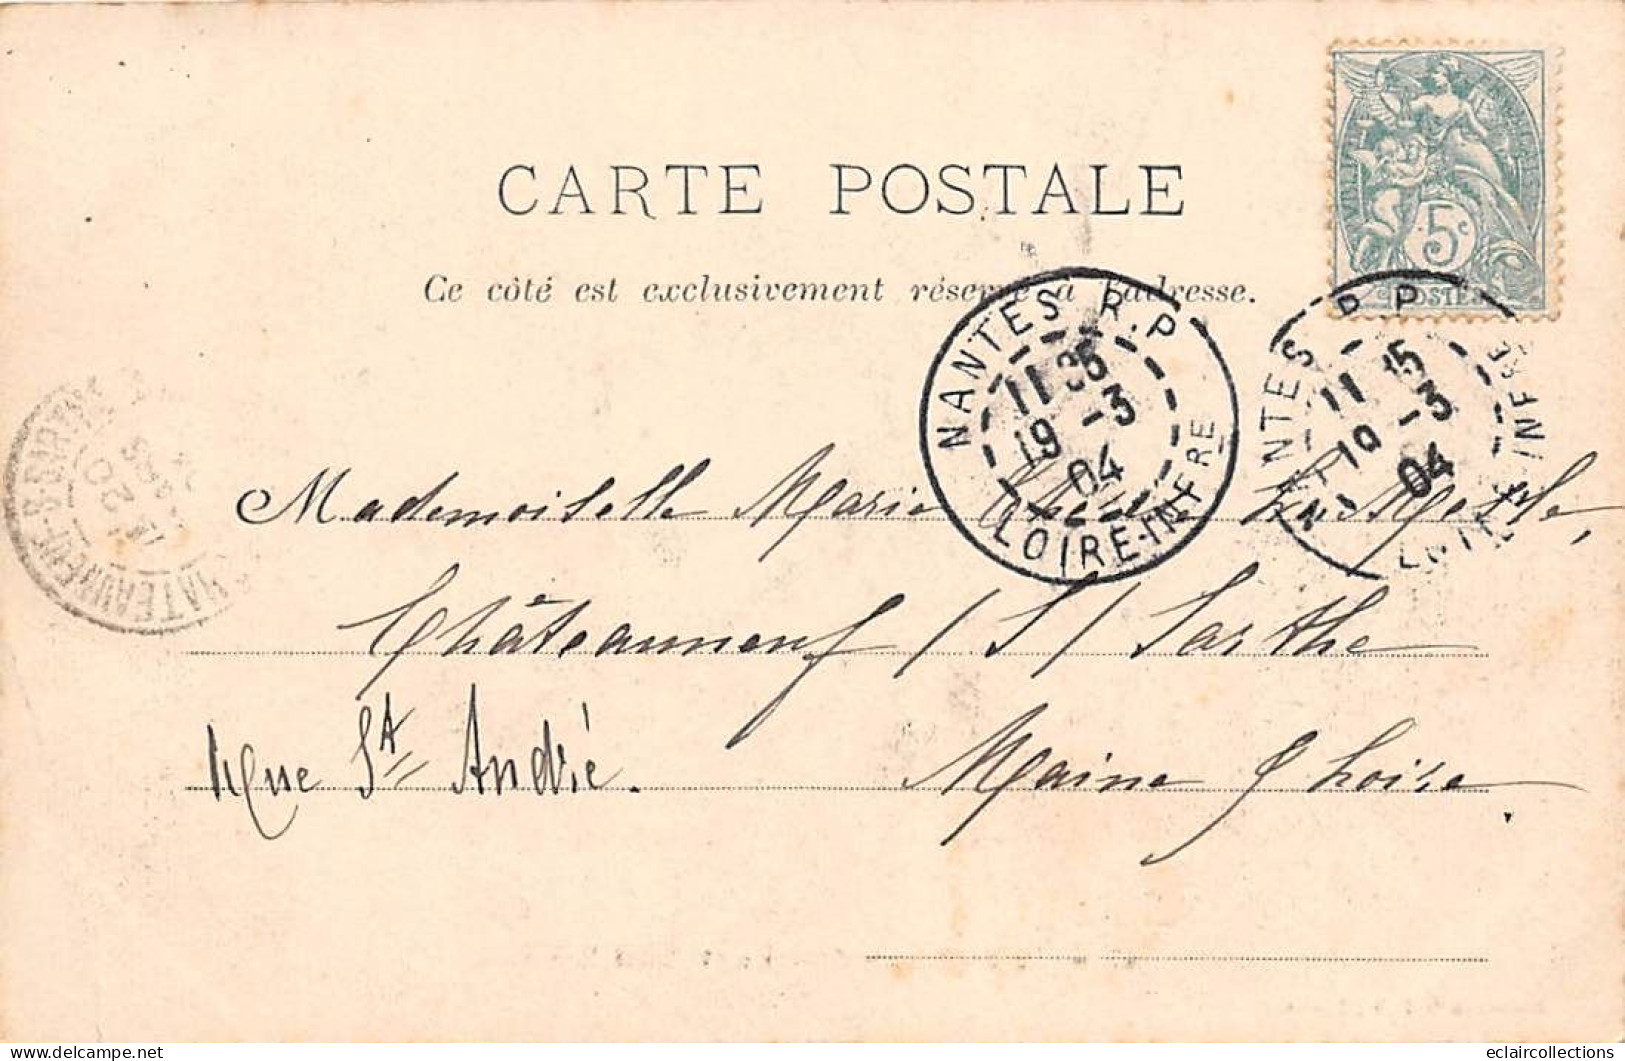 CARTE POSTALE
Ce côté est exclusivement réservé à l'adresse.
5c
POSTES
NANTES R.P
11 35
19 -3
04
LOIRE-INFRE
NANTES R.P
11 35
19 -3
04
LOIRE-INFRE
Mademoiselle Marie Le Mesle,
Châteauneuf /S/ Sarthe
Rue St André. Maine & Loire
CHATEAUNEUF-S-SARTHE
20
eclaircollections